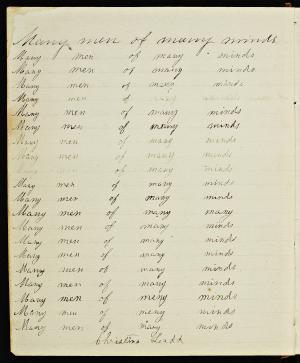 Many men of many minds
Many men of many minds
Many men of many minds
Many men of many minds
Many men of many minds
Many men of many minds
Many men of many minds
Many men of many minds
Many men of many minds
Many men of many minds
Many men of many minds
Many men of many minds
Many men of many
Many men of many many
Many men of many minds
Many men of many minds
Many men of many minds
Many men of many minds
Many men of many minds
Many men of meny minds
Many men of meny minds
Many men of many minds
Christina